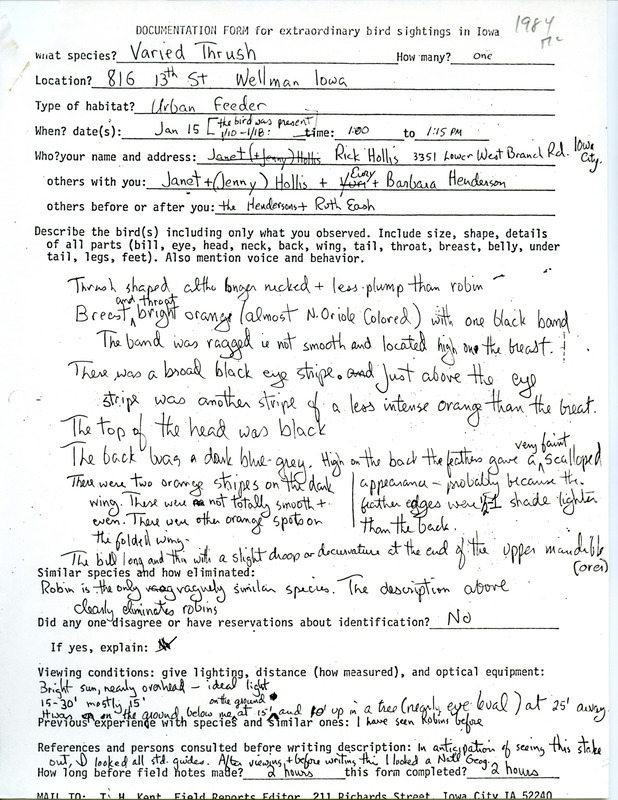 DOCUMENTATION FORM for extraordinary bird sightings in Iowa 1984
What species? Varied Thrush How many? one
Location? 816 13th St Wellman Iowa
Type of habitat? Urban Feeder
When? date(s): Jan 15 [the bird was present 1/10-1/18: time: 1:00 to 1:15 PM
Who?your name and address: Janet (+Jenny) Hollis Rick Hollis 3351 Lower West Branch Rd. Iowa City.
others with you: Janet + (Jenny) Hollis + Eury + Barbara Henderson
others before or after you: the Hendersons + Ruth Eash
Describe the bird(s) including only what you observed. Include size, shape, details
of all parts (bill, eye, head, neck, back, wing, tail, throat, breast, belly, under
tail, legs, feet). Also mention voice and behavior.
Thrush shaped altho longer necked + less plump than robin
Breast and throat bright orange (almost N. Oriole Colored) with one black band
The band was ragged ie not smooth and located high on the breast.
There was a broad black eye stripe. and Just above the eye
stripe was another stripe of a less intense orange than the breat.
The top of the head was black
The back was a dark blue-grey. High on the back the feathers gave a very faint scalloped
appearance - probably because the
feather edges were 1 shade lighter
than the back.
There were two orange stripes on the dark
wing. These were not totally smooth +
even. There were other orange spots on
the folded wing.
The bill long and thin with a slight droop or decurvature at the end of the upper mandible
(over)
Similar species and how eliminated:
Robin is the only vaguely similar species. The description above
clearly eliminates robins
Did any one disagree or have reservations about identification? No
If yes, explain:
Viewing conditions: give lighting, distance (how measured), and optical equipment:
Bright sun, nearly overhead - ideal light
15-30' mostly 15' on the ground
It was on the ground, below me at 15' and 10' up in a tree (nearly eye level) at 25' away.
Previous experience with species and similar ones: I have seen Robins before
References and persons consulted before writing description: In anticipation of seeing this stake
out, I looked all std. guides. After viewing + before writing this I looked a Natl Geog.
How long before field notes made? 2 hours this form completed? 2 hours
MAIL TO: T. H. Kent, Field Reports Editor, 211 Richards Street, Iowa City IA 52240